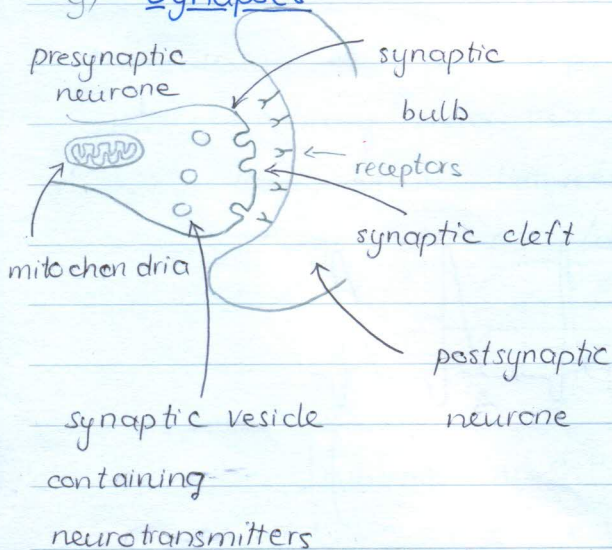 g) Synapses
presynaptic
neurone
synaptic
bulb
receptors
synaptic cleft
mitochondria
postsynaptic
neurone
synaptic vesicle
containing
neurotransmitters